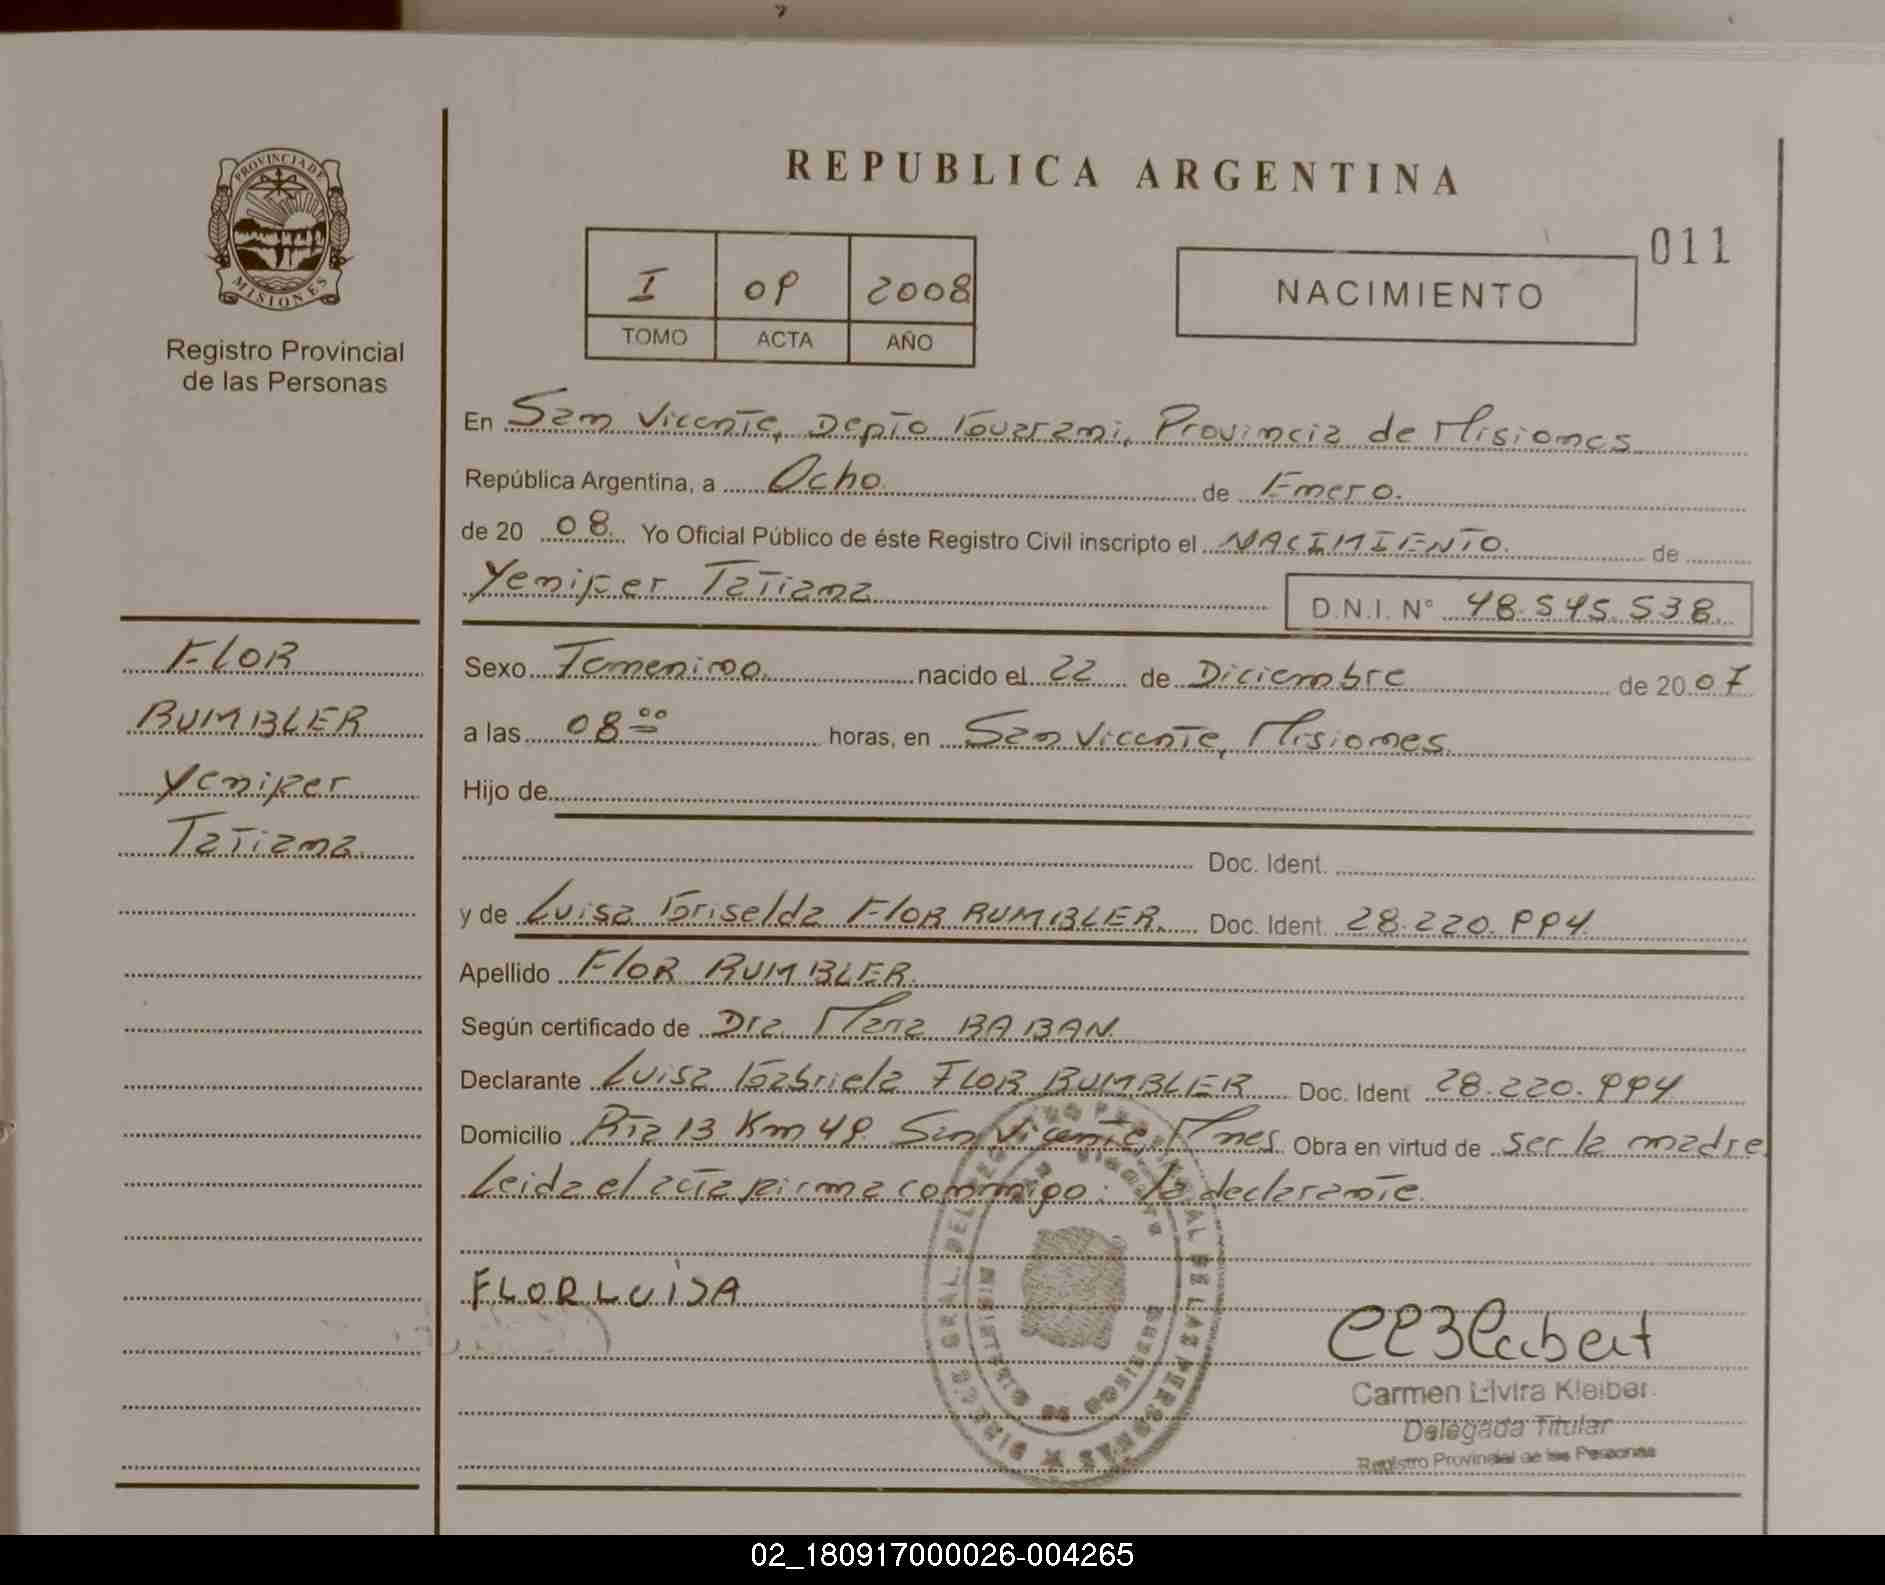 REPUBLICA ARGENTINA
011
PROVINCIA DE
MISIONES
Registro Provincial
de las Personas
I 09 2008
TOMO ACTA AÑO
NACIMIENTO
En San Vicente, Depto Guarani, Provincia de Misiones
República Argentina, a Ocho de Enero.
de 20 08. Yo Oficial Público de éste Registro Civil inscripto el NACIMIENTO. de
Yenifer Tatiana D.N.I. N° 48.545.538.
FLOR
RUMBLER
Yenifer
Tatiana
Sexo Femenino nacido el 22 de Diciembre de 20 07
a las 08 00 horas, en San Vicente, Misiones.
Hijo de
Doc. Ident.
y de Luisa Griselda FLOR RUMBLER. Doc. Ident. 28.220.994
Apellido FLOR RUMBLER.
Según certificado de Dra. Maria BABAN.
Declarante Luisa Gabriela FLOR RUMBLER Doc. Ident 28.220.994
Domicilio Rta 13 Km 49. San Vicente, Mnes. Obra en virtud de ser la madre
Leida el acta firma conmigo: la declarante.
FLOR LUISA
Carmen Elvira Kleiber
Delegada Titular
Registro Provincial de las Personas
02_180917000026-004265